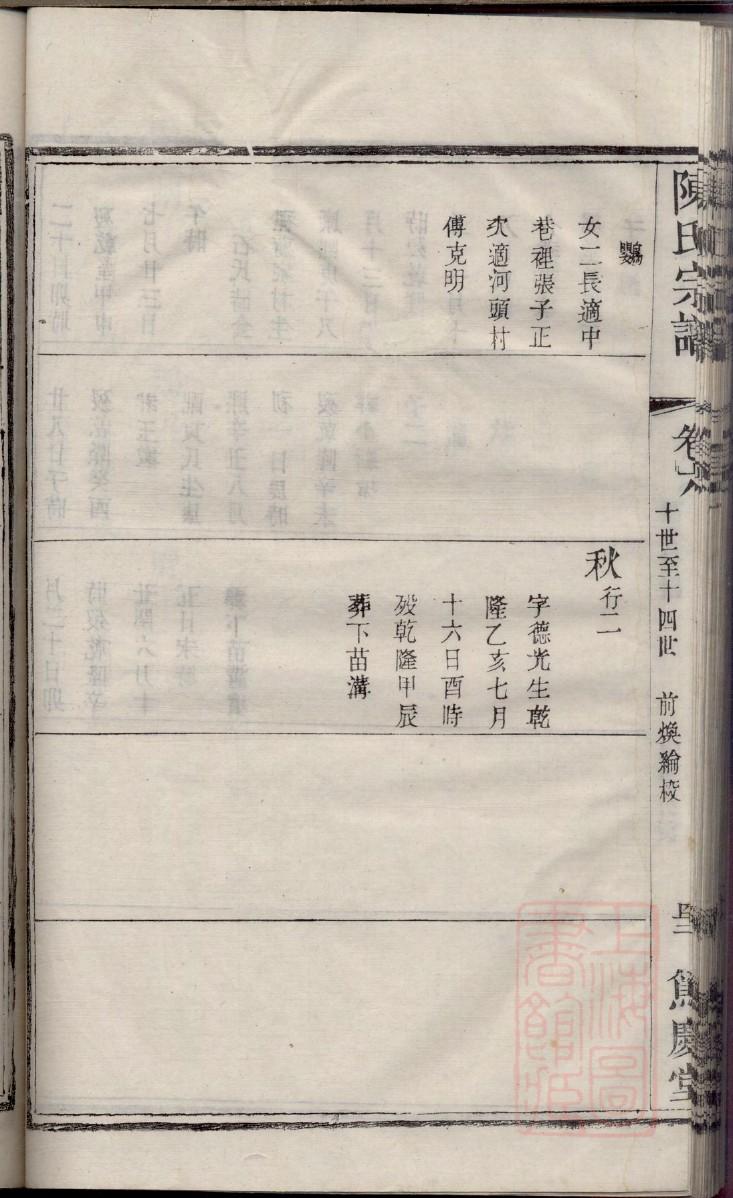 陳氏宗譜
卷六
十世至十四世 前煥綸校
慶堂
鸚
女二長適中
巷裡張子正
次適河頭村
傅克明
秋行二
字德光生乾
隆乙亥七月
十六日酉時
歿乾隆甲辰
葬下苗溝
上海圖
書館藏